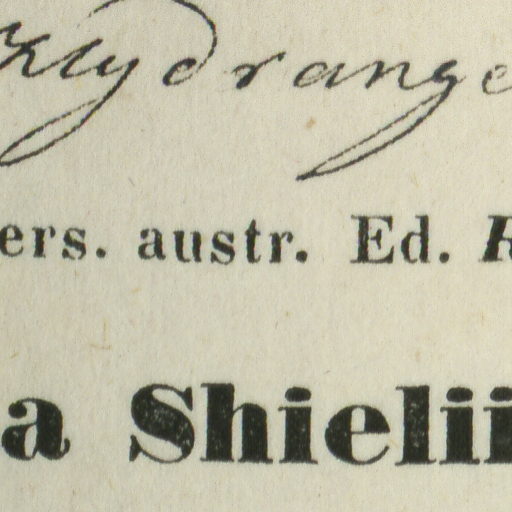 Hydrange
ers. austr. Ed.
a Shielii